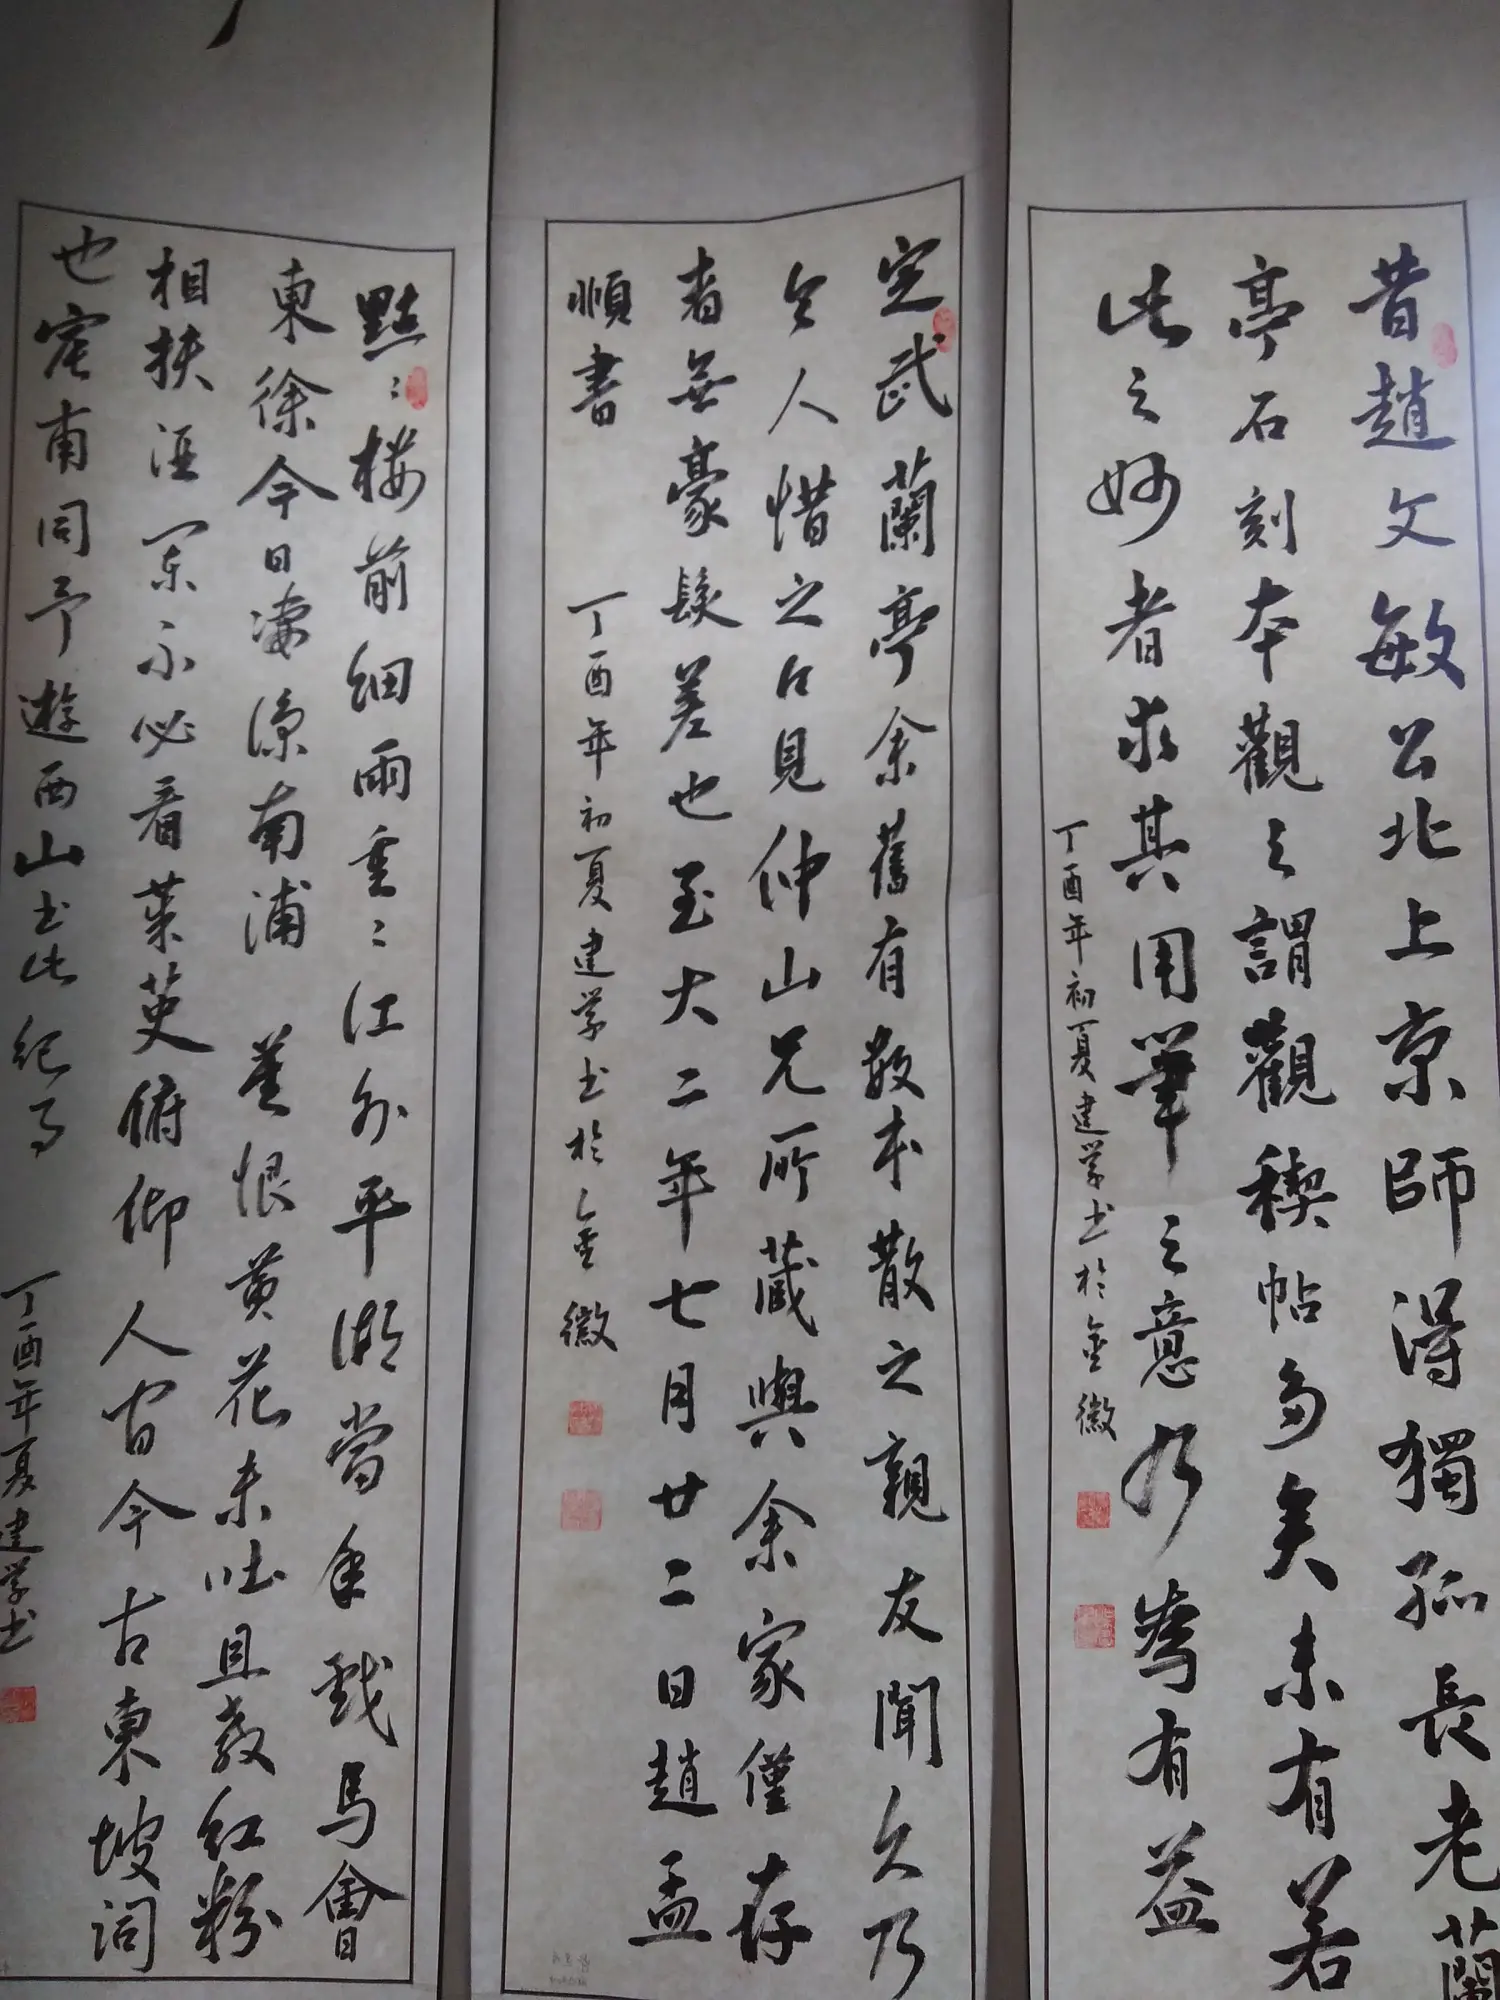 昔趙文敏公北上京師得獨孤長老蘭
亭石刻本觀之謂觀禊帖多矣未有若
此之妙者求其用筆之意乃為有益
丁酉年初夏建学书於金徽
定武蘭亭余舊有數本散之親友間久乃
令人惜之今見仲山兄所藏與余家僅存
者無豪髮差也至大二年七月廿二日趙孟
順書
丁酉年初夏建学书於金徽
點〻樓前細雨重〻江外平湖當年戲馬會
東徐今日淒涼南浦 莫恨黃花未吐且教紅粉
相扶酒闌不必看茱萸俯仰人間今古東坡詞
也 甫同予遊西山书此紀事
丁酉年夏建学书